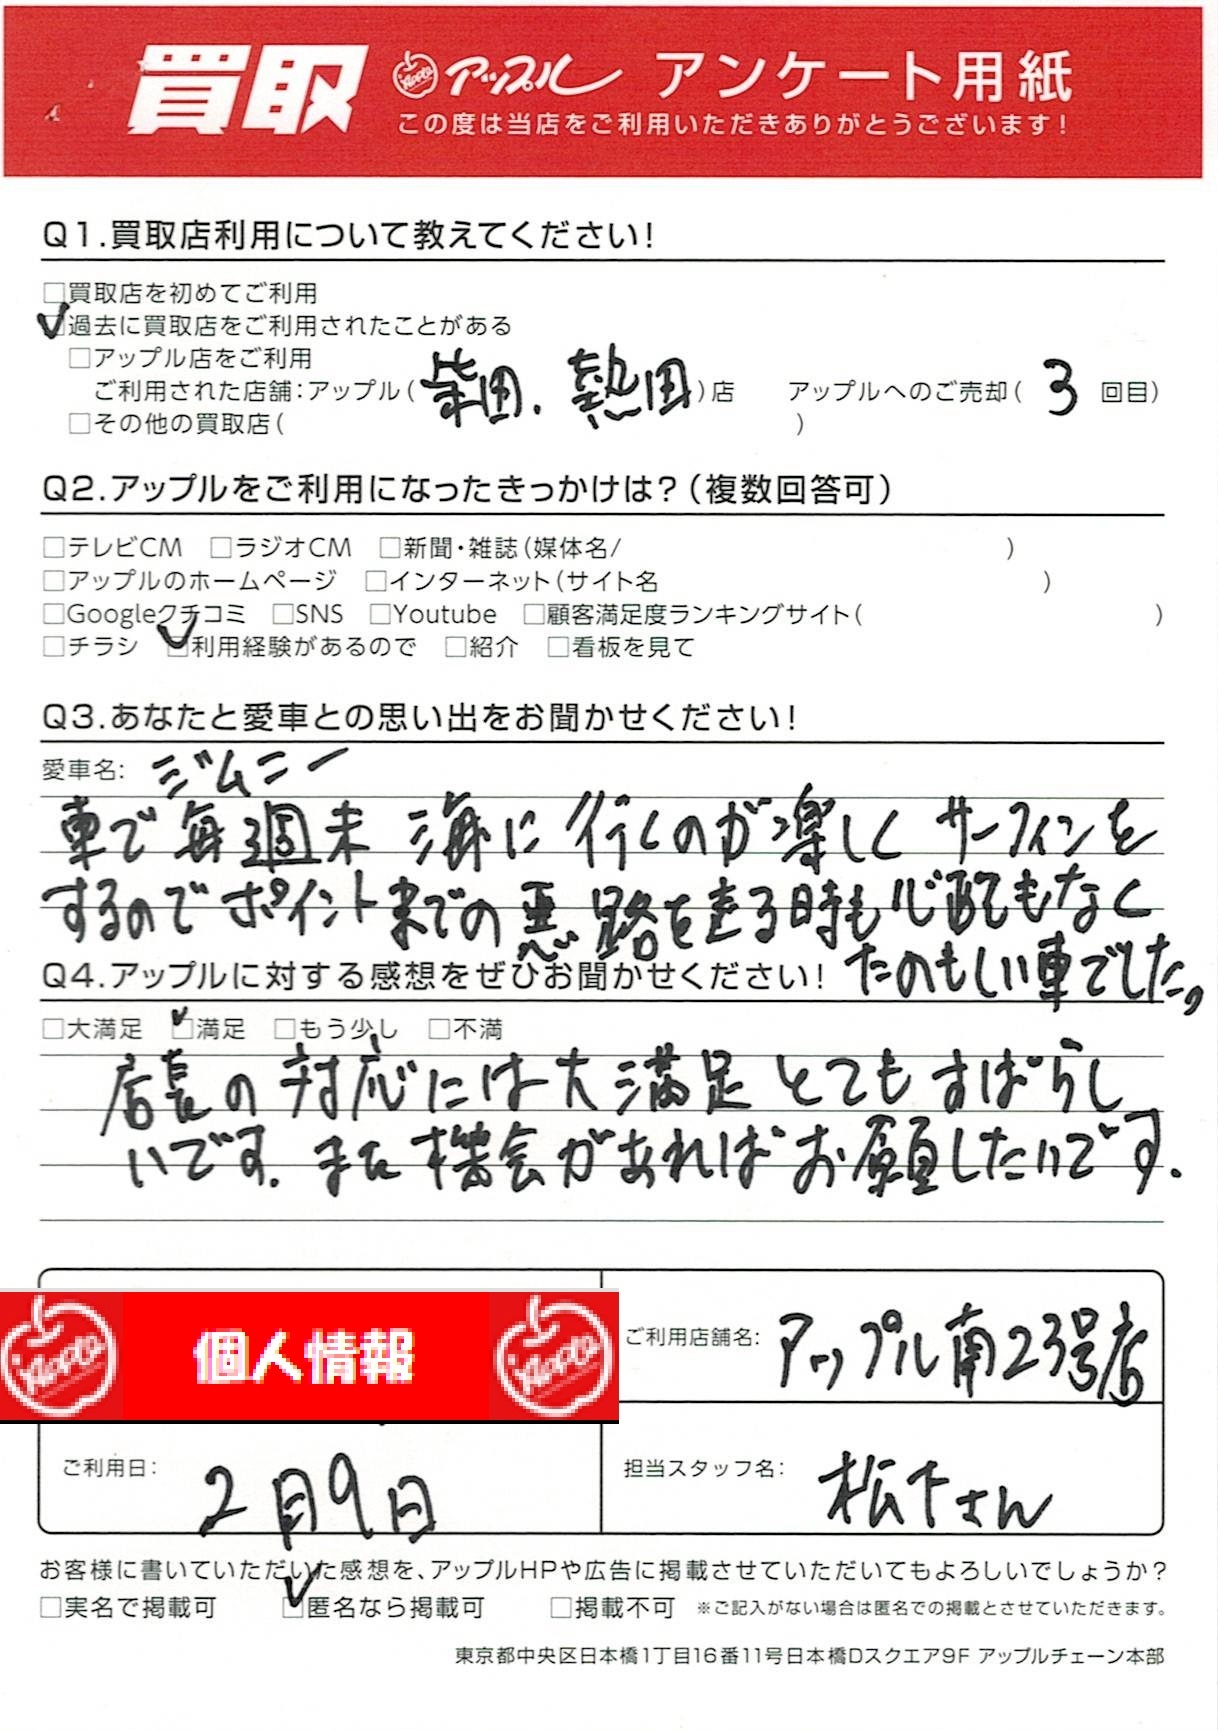 買取 Apple アップル アンケート用紙
この度は当店をご利用いただきありがとうございます!
Q1.買取店利用について教えてください!
□買取店を初めてご利用
☑過去に買取店をご利用されたことがある
□アップル店をご利用
ご利用された店舗:アップル(柴田.熱田)店 アップルへのご売却(3回目)
□その他の買取店( )
Q2.アップルをご利用になったきっかけは?(複数回答可)
□テレビCM □ラジオCM □新聞・雑誌(媒体名/ )
□アップルのホームページ □インターネット(サイト名 )
□Googleクチコミ □SNS □Youtube □顧客満足度ランキングサイト( )
□チラシ ☑利用経験があるので □紹介 □看板を見て
Q3.あなたと愛車との思い出をお聞かせください!
愛車名: ジムニー
車で毎週末 海に行くのが楽しく サーフィンを
するのでポイントまでの悪路を走る時も心配もなく
たのもしい車でした。
Q4.アップルに対する感想をぜひお聞かせください!
□大満足 ☑満足 □もう少し □不満
店長の対応には大満足とてもすばらし
いです。また機会があればお願したいです.
Apple 個人情報 Apple
ご利用店舗名: アップル南23号店
ご利用日: 2月9日
担当スタッフ名: 松下さん
お客様に書いていただいた感想を、アップルHPや広告に掲載させていただいてもよろしいでしょうか?
□実名で掲載可 ☑匿名なら掲載可 □掲載不可 ※ご記入がない場合は匿名での掲載とさせていただきます。
東京都中央区日本橋1丁目16番11号日本橋Dスクエア9F アップルチェーン本部